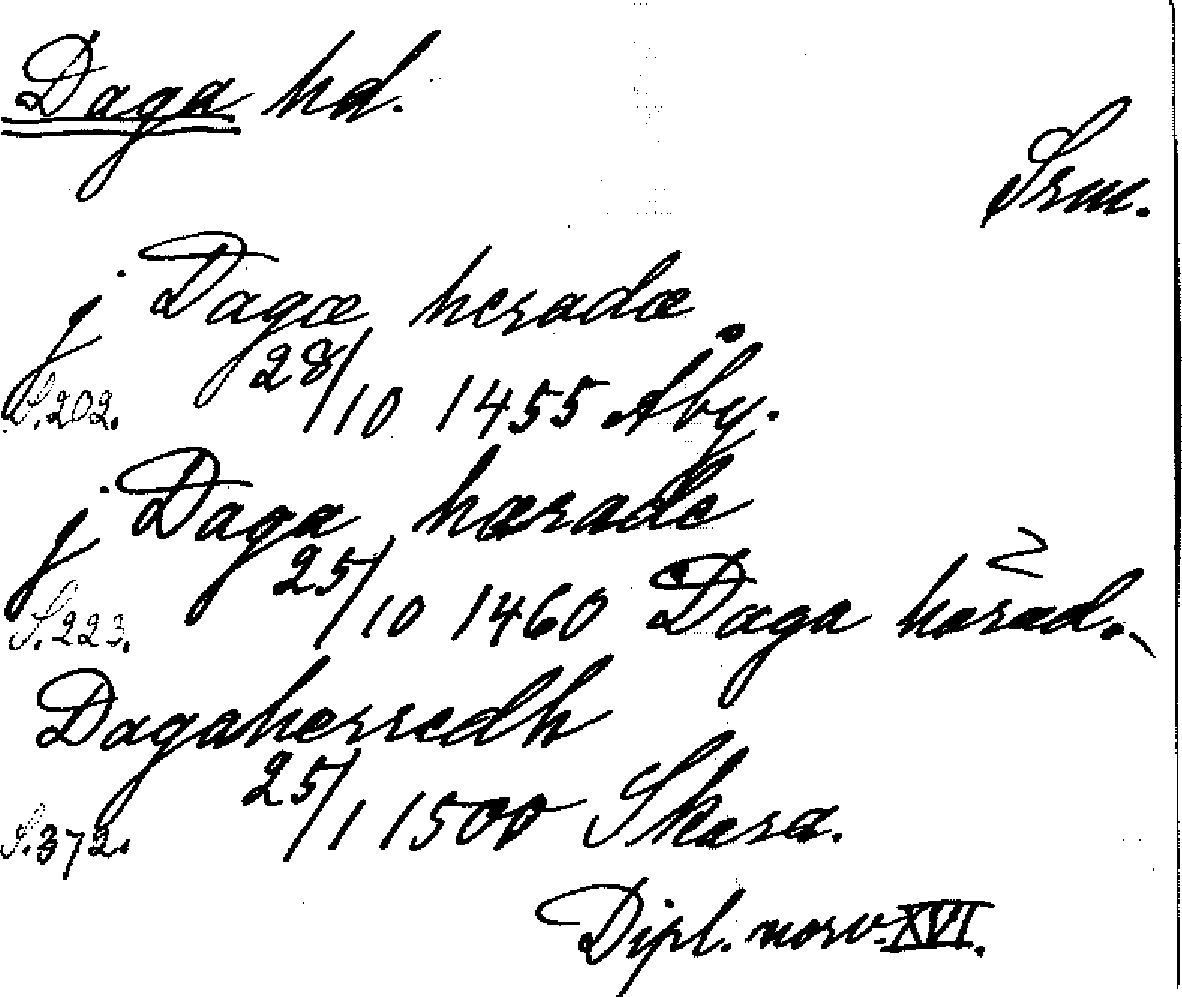 Daga hd.
Srm.
j Dagæ heradæ
S.202. 28/10 1455 Åby.
j Daga hærade
S.223. 25/10 1460 Daga härad.
Dagaherredh
S.372. 25/1 1500 Skara.
Dipl. norv. XVI.